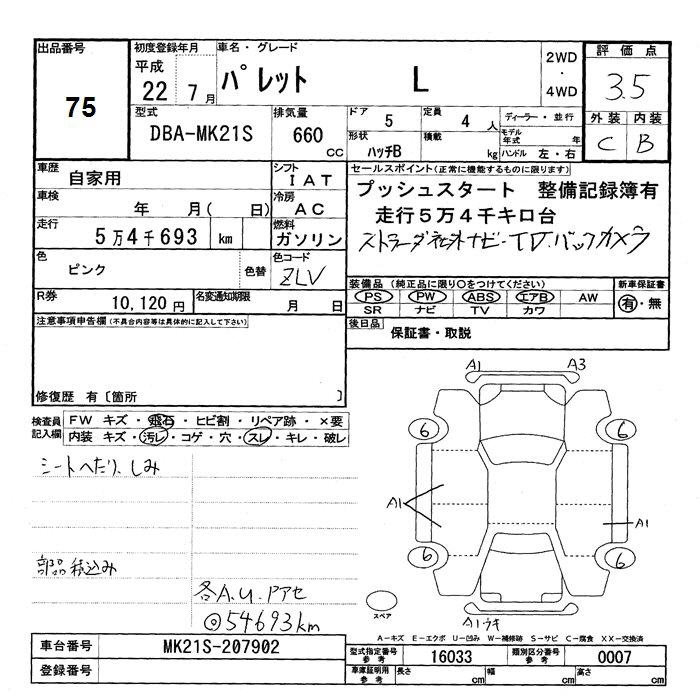 出品番号 初度登録年月 車名・グレード 2WD ・ 4WD 評価点
75 平成 22 7月 パレット L 3.5
型式 排気量 ドア 定員 ディーラー・並行 外装 内装
DBA-MK21S 660 CC 5 4人 モデル年式 年 C B
形状 ハッチB 積載 kg ハンドル 左・右
車歴 自家用 シフト IAT セールスポイント(正常に機能するものに限ります)
車検 年 月( 日) 冷房 AC プッシュスタート 整備記録簿有
走行 5万4千693 km 燃料 ガソリン 走行5万4千キロ台
ストラーダ社外ナビ-TV.バックカメラ
色 ピンク 色替 色コード ZLV
装備品(純正品に限り○をつけてください) 新車保証書
R券 10,120円 名変通知期限 月 日 PS PW ABS エアB AW 有・無
SR ナビ TV カワ
注意事項申告欄(不具合内容等は具体的に記入して下さい) 後日品 保証書・取説
修復歴 有〔箇所 〕
A1 A3
検査員記入欄 FW キズ・飛石・ヒビ割・リペア跡・×要
内装 キズ・汚レ・コゲ・穴・スレ・キレ・破レ
6 6
シートへたり、しみ
A1 A1
部品積込み
6 6
各A.U.ドアセ
◎54693km
スペア
A1ウキ
A-キズ E-エクボ U-凹み W-補修跡 S-サビ C-腐食 XX-交換済
車台番号 MK21S-207902 型式指定番号 参考 16033 類別区分番号 参考 0007
登録番号 車庫証明用 参考 長さ cm 幅 cm 高さ cm